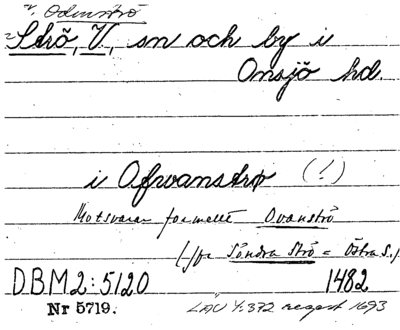 v. Odenströ
Strö, V., sn och by i
Onsjö hd.
i Ofvanströ (!)
Motsvarar formellt Ovanströ
(jfr Söndra Strö = Östra S.)
D.B.M 2:5120 1482
Nr 5719. LÄU 4:372 regest 1693